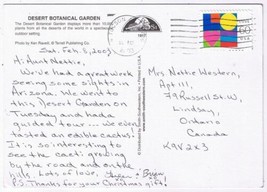 DESERT BOTANICAL GARDEN
The Desert Botanical Garden displays more than 10,000
plants from all the deserts of the world in a spectacular
outdoor setting.
Photo by Ken Raveill, © Terrell Publishing Co.
Sat. Feb. 8, 2003
Hi Aunt Nettie,
We've had a great week
seeing some sights in
Arizona. We went to
this Desert Garden on
Tuesday and had a
guided tour ... we even
tasted an edible cactus!
It is so interesting to
see the cacti growing
by the road and on the
hills. Lots of love.
P.S. Thanks for your Christmas gift!
Mrs Nettie Western,
Apt 111,
79 Russell St. W.
Lindsay,
Ontario
Canada
K9V2X3
60